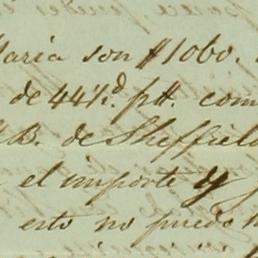 Maria son $1060.
de 44½d. pH. com
B. de Sheffield
el importe y
esto no puedo